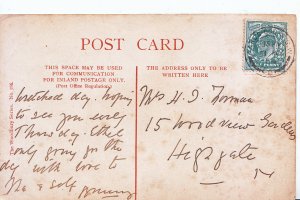 POST CARD
THIS SPACE MAY BE USED
FOR COMMUNICATION
FOR INLAND POSTAGE ONLY.
(Post Office Regulation).
THE ADDRESS ONLY TO BE
WRITTEN HERE
The Woodbury Series, No.
Wretched day. hoping
to see you early
Thursday. Ethel
only going for the
day with love to
& self
Mrs H. J. Forman
15 Woodview Gardens
Highgate
N